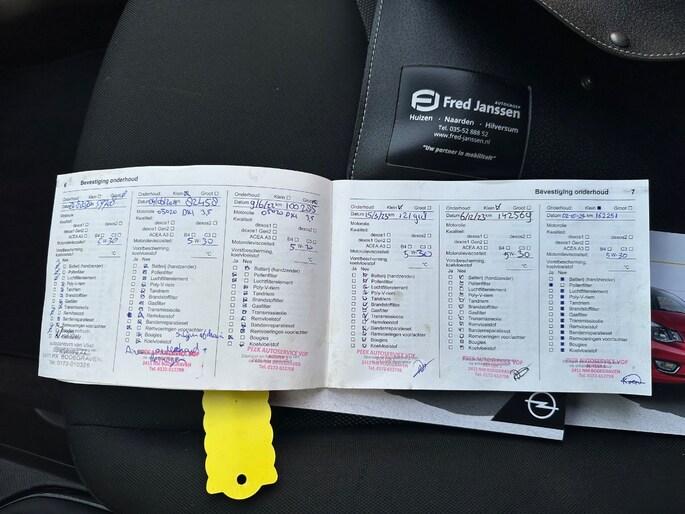 Fred Janssen
AUTOGROEP
Huizen · Naarden · Hilversum
Tel. 035-52 888 52
www.fred-janssen.nl
"Uw partner in mobiliteit"
6 Bevestiging onderhoud
Onderhoud: Klein Groot
Datum km
Motorolie
Kwaliteit:
dexos1 dexos2
dexos1 Gen2
ACEA A3 B4 C3
Motorolieviscositeit 5w30
Vorstbescherming, koelvloeistof °C
Ja Nee
Batterij (handzender)
Pollenfilter
Luchtfilterelement
Poly-V-riem
Tandriem
Brandstoffilter
Gasfilter
Transmissieolie
Remvloeistof
Bandenreparatieset
BODEGRAVEN
Tel: 0172-010325
Onderhoud: Klein Groot
Datum km 82458
Motorolie 05020 DX1 35
Kwaliteit:
dexos1 dexos2
dexos1 Gen2
ACEA A3 B4 C3
Motorolieviscositeit 5w30
Vorstbescherming, koelvloeistof °C
Ja Nee
Batterij (handzender)
Pollenfilter
Luchtfilterelement
Poly-V-riem
Tandriem
Brandstoffilter
Gasfilter
Transmissieolie
Remvloeistof
Bandenreparatieset
Remvoeringen voor/achter
Bougies
Koelvloeistof
PEEK AUTOSERVICE VOF
2411 NM BODEGRAVEN
Tel. 0172-613798
Onderhoud: Klein Groot
Datum 9/6/22 km 100285
Motorolie 05020 DX1 35
Kwaliteit:
dexos1 dexos2
dexos1 Gen2
ACEA A3 B4 C3
Motorolieviscositeit 5w-30
Vorstbescherming, koelvloeistof °C
Ja Nee
Batterij (handzender)
Pollenfilter
Luchtfilterelement
Poly-V-riem
Tandriem
Brandstoffilter
Gasfilter
Transmissieolie
Remvloeistof
Bandenreparatieset
Remvoeringen voor/achter
Bougies
Koelvloeistof
PEEK AUTOSERVICE VOF
2411 NM BODEGRAVEN
Tel. 0172-613798
Bevestiging onderhoud 7
Onderhoud: Klein Groot
Datum 15/3/23 km
Motorolie
Kwaliteit:
dexos1 dexos2
dexos1 Gen2
ACEA A3 B4 C3
Motorolieviscositeit 5w30
Vorstbescherming, koelvloeistof °C
Ja Nee
Batterij (handzender)
Pollenfilter
Luchtfilterelement
Poly-V-riem
Tandriem
Brandstoffilter
Gasfilter
Transmissieolie
Remvloeistof
Bandenreparatieset
Remvoeringen voor/achter
Bougies
Koelvloeistof
PEEK AUTOSERVICE VOF
2411 NM BODEGRAVEN
Tel. 0172-613798
Onderhoud: Klein Groot
Datum 6/12/23 km 142569
Motorolie
Kwaliteit:
dexos1 dexos2
dexos1 Gen2
ACEA A3 B4 C3
Motorolieviscositeit 5w-30
Vorstbescherming, koelvloeistof °C
Ja Nee
Batterij (handzender)
Pollenfilter
Luchtfilterelement
Poly-V-riem
Tandriem
Brandstoffilter
Gasfilter
Transmissieolie
Remvloeistof
Bandenreparatieset
Remvoeringen voor/achter
Bougies
Koelvloeistof
PEEK AUTOSERVICE VOF
2411 NM BODEGRAVEN
Tel. 0172-613798
Onderhoud: Klein Groot
Datum km 162251
Motorolie
Kwaliteit:
dexos1 dexos2
dexos1 Gen2
ACEA A3 B4 C3
Motorolieviscositeit 5w-30
Vorstbescherming, koelvloeistof °C
Ja Nee
Batterij (handzender)
Pollenfilter
Luchtfilterelement
Poly-V-riem
Tandriem
Brandstoffilter
Gasfilter
Transmissieolie
Remvloeistof
Bandenreparatieset
Remvoeringen voor/achter
Bougies
Koelvloeistof
PEEK AUTOSERVICE VOF
2411 NM BODEGRAVEN
Tel. 0172-613798